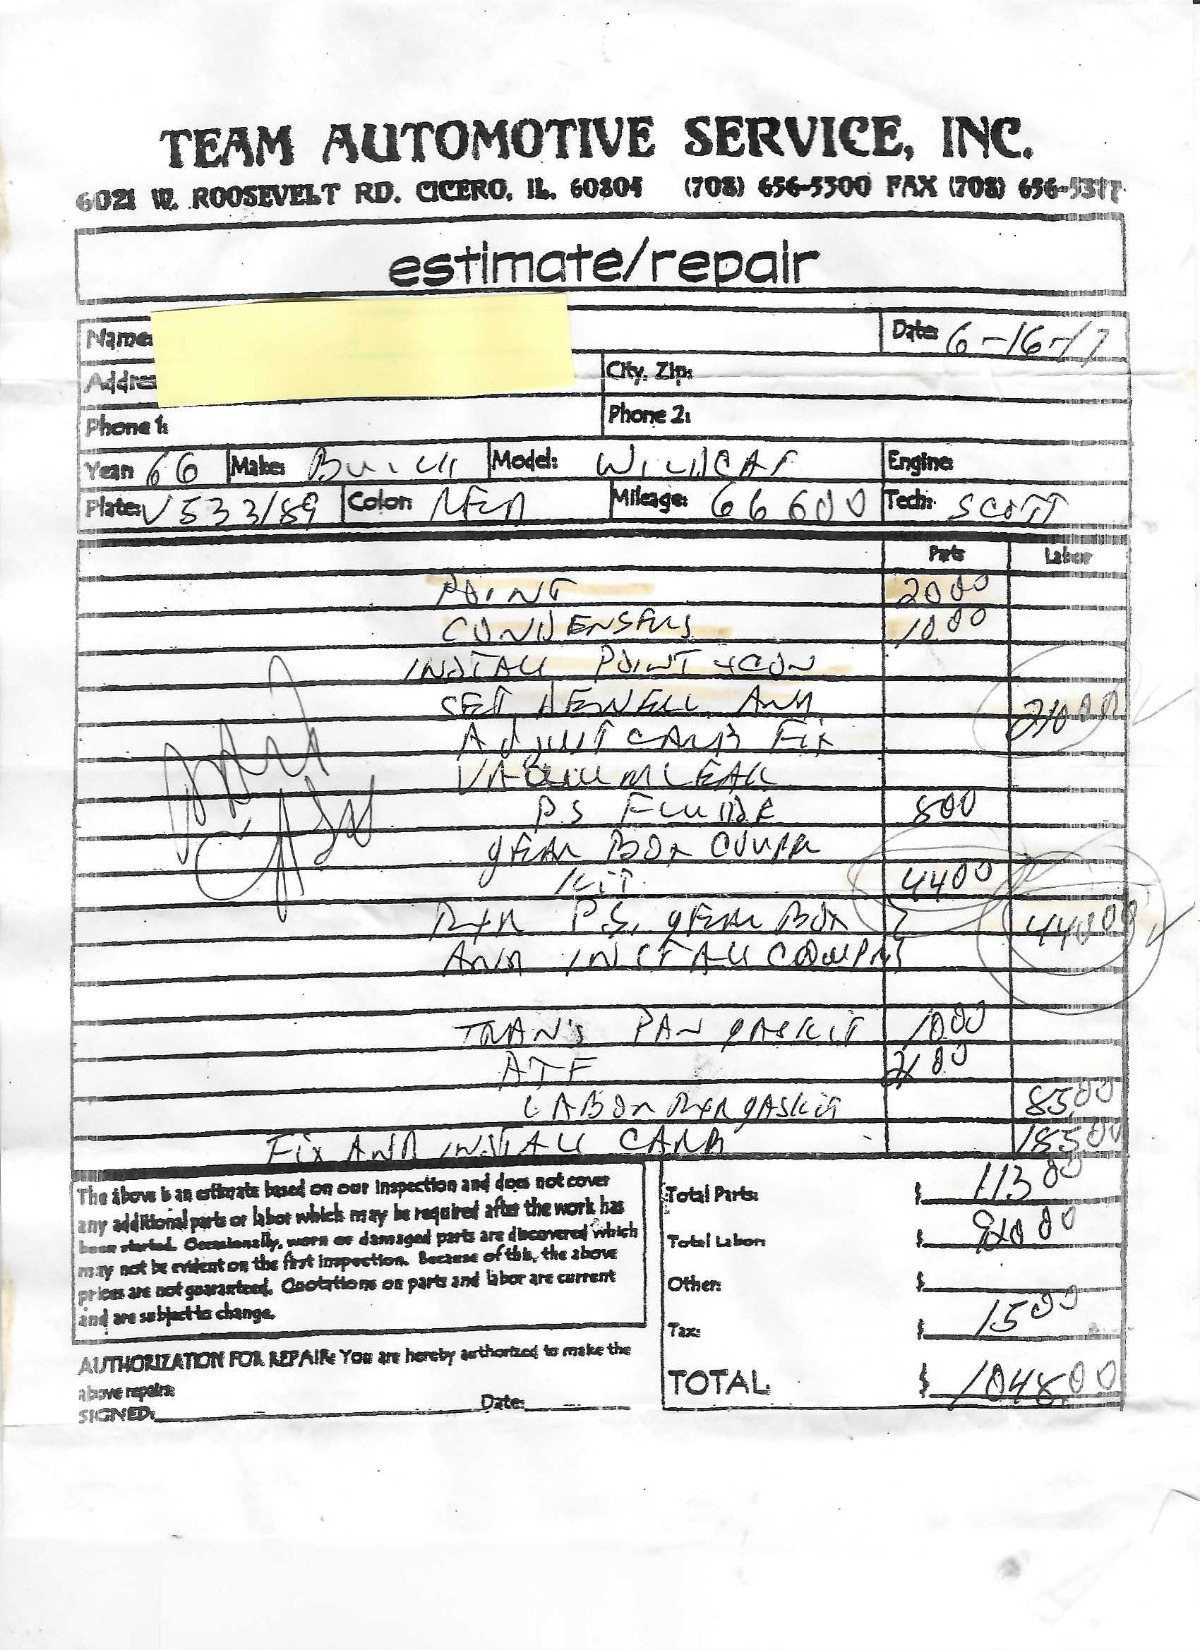 TEAM AUTOMOTIVE SERVICE, INC.
6021 W. ROOSEVELT RD. CICERO, IL. 60804 (708) 656-5300 FAX (708) 656-5377
estimate/repair
Name: Date: 6-16-17
Addre City, Zip:
Phone 1: Phone 2:
Year: 66 Make: Buick Model: WILDCAT Engine:
Plate: V533189 Color: RED Mileage: 66600 Tech: SCOTT
Parts Labor
POINT 2000
CONDENSERS 1000
INSTALL POINT + CON
SET AND 210.00
ADJUST CARB Fix
VACUUM LEAK
P.S FLUIDE 800
gEAR BOX COUPR
KIT. 4400
R+R P.S, gEAR BOX 440.00
AND INSTALL
TRAN'S PAN gASKIT 1000
ATF 2100
LABOR R+R gASKit 85.00
Fix AND INSTALL CARB 185.00
The above is an estimate based on our inspection and does not cover
any additional parts or labor which may be required after the work has
been started. Occasionally, worn or damaged parts are discovered which
may not be evident on the first inspection. Because of this, the above
prices are not guaranteed. Quotations on parts and labor are current
and are subject to change.
AUTHORIZATION FOR REPAIR: You are hereby authorized to make the
above repairs:
SIGNED: Date:
Total Parts: $ 113.00
Total Labor: $ 920.00
Other: $
Tax: $ 1500
TOTAL $ 1048.00